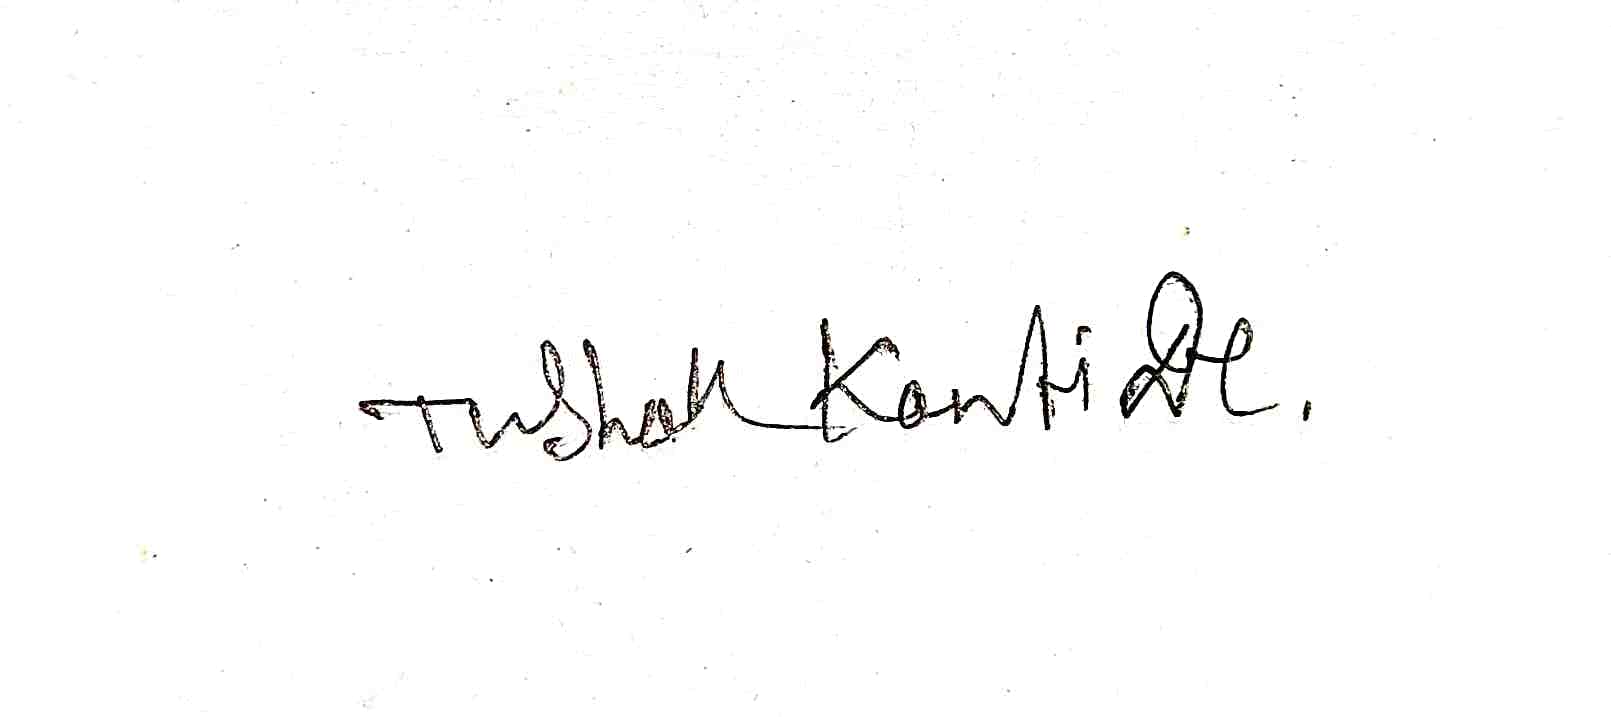 Tushar Kanti De.